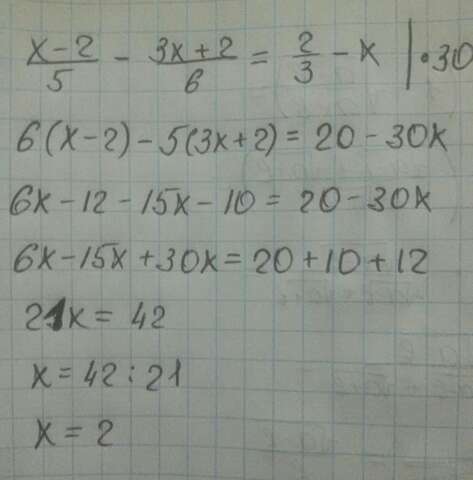 x-2/5 - 3x+2/6 = 2/3 - x | · 30
6(x-2) - 5(3x+2) = 20 - 30x
6x - 12 - 15x - 10 = 20 - 30x
6x - 15x + 30x = 20 + 10 + 12
21x = 42
x = 42 : 21
x = 2